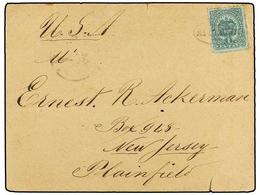 U.S.A
Mr
Ernest. R. Ackerman
Box 968
New Jersey
Plainfield